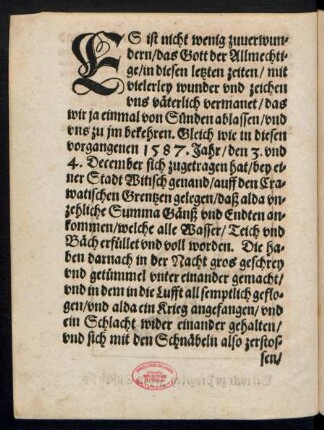 ES ist nicht wenig zuuerwun-
dern/das Gott der Allmechti-
ge/in diesen letzten zeiten/ mit
vielerley wunder vnd zeichen
vns väterlich vermanet/das
wir ja einmal von Sünden ablassen/vnd
vns zu jm bekehren. Gleich wie in diesen
vorgangenen 1587. Jahr/den 3. vnd
4. December sich zugetragen hat/bey ei-
ner Stadt Witisch genand/auff den Cra-
watischen Grentzen gelegen/daß alda vn-
zehliche Summa Gänß vnd Endten an-
kommen/welche alle Wasser/Teich vnd
Bäch erfüllet vnd voll worden. Die ha-
ben darnach in der Nacht gros geschrey
vnd getümmel vnter einander gemacht/
vnd in dem in die Lufft all semptlich geflo-
gen/vnd alda ein Krieg angefangen/vnd
ein Schlacht wider einander gehalten/
vnd sich mit den Schnäbeln also zerstos-
sen/